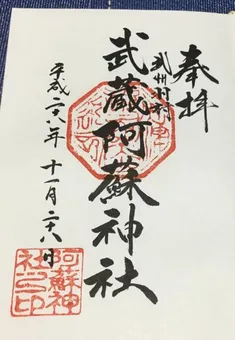 奉拝
武州村村
武蔵阿蘇神社
平成二十八年 十一月二十八日
阿蘇神
社之印